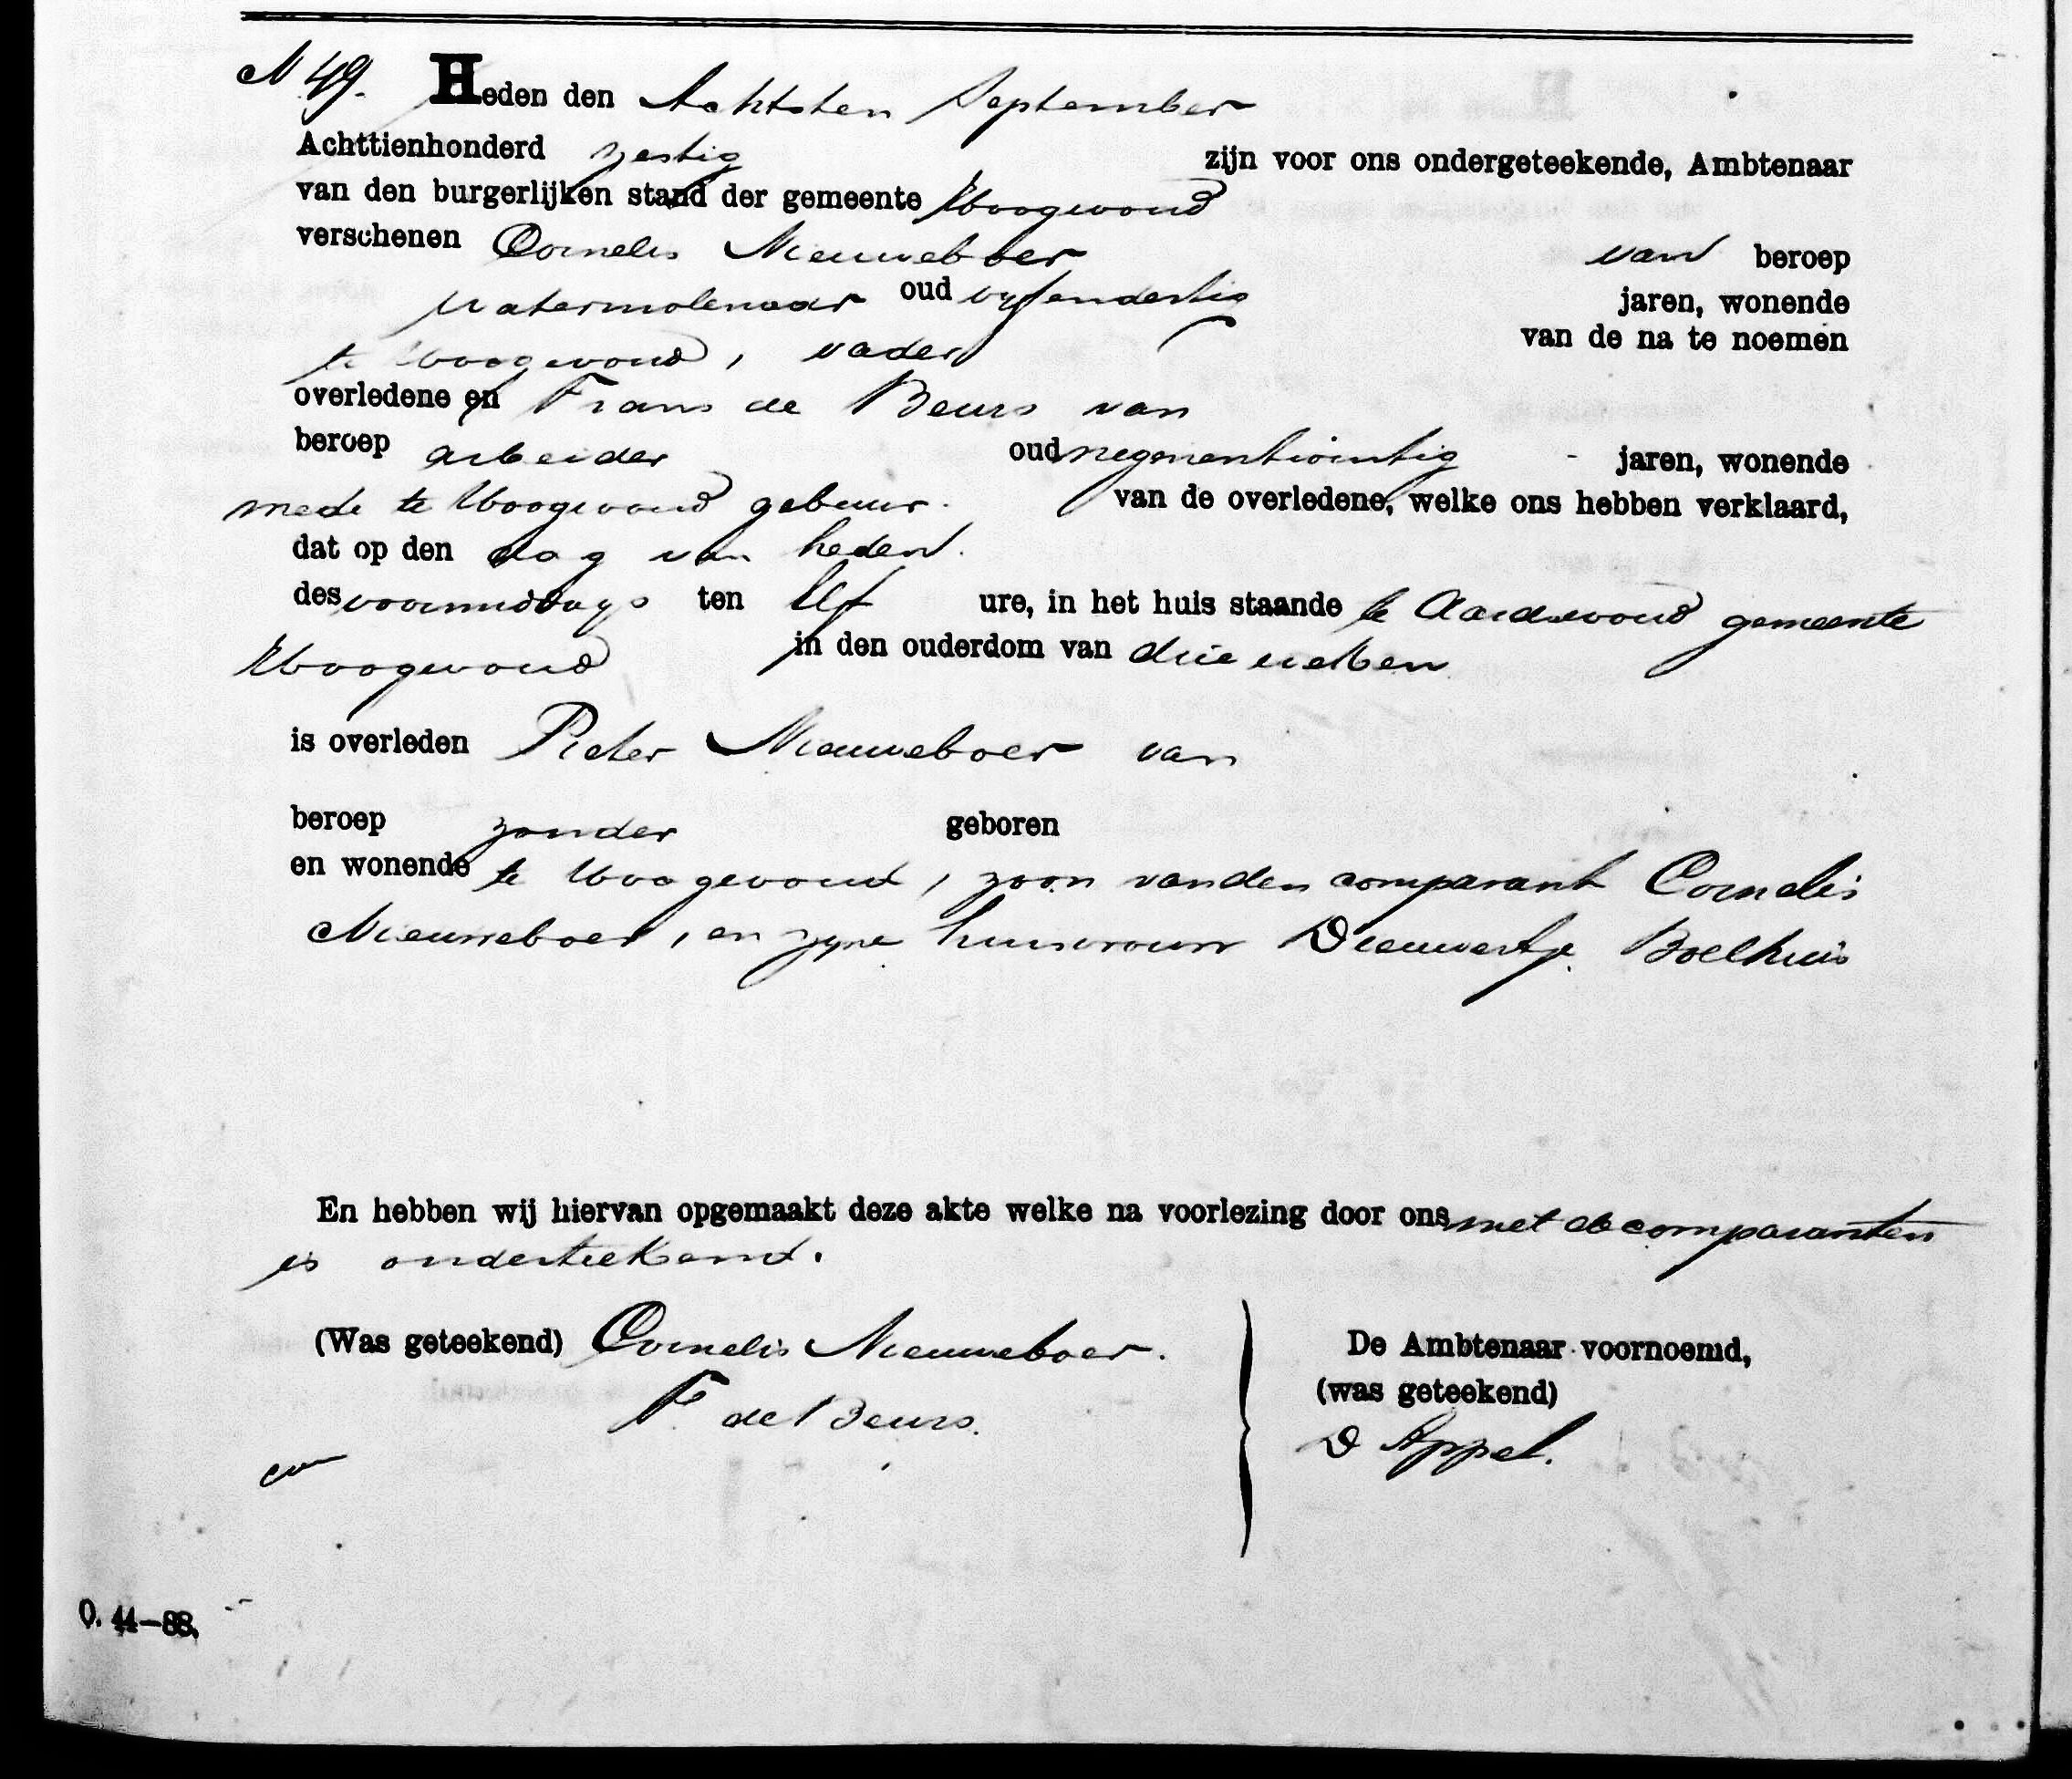 N 49. Heden den Achtsten September
Achttienhonderd zestig zijn voor ons ondergeteekende, Ambtenaar
van den burgerlijken stand der gemeente Hoogwoud
verschenen Cornelis Nieuweboer van beroep
watermolenaar oud vyfendertig jaren, wonende
te Hoogwoud, vader van de na te noemen
overledene en Frans de Beurs van
beroep arbeider oud negenentwintig jaren, wonende
mede te Hoogwoud gebuur. van de overledene, welke ons hebben verklaard,
dat op den dag van heden.
des voormiddags ten Elf ure, in het huis staande te Aardswoud gemeente
Hoogwoud in den ouderdom van drie weken
is overleden Pieter Nieuweboer van
beroep zonder geboren
en wonende te Hoogwoud, zoon van den comparant Cornelis
Nieuweboer, en zyne huisvrouw Dieuwertje Boelhuis
En hebben wij hiervan opgemaakt deze akte welke na voorlezing door ons met de comparanten
is onderteekend.
(Was geteekend) Cornelis Nieuweboer. De Ambtenaar voornoemd,
(was geteekend)
F. de Beurs. D Appel.
O. 44—88.